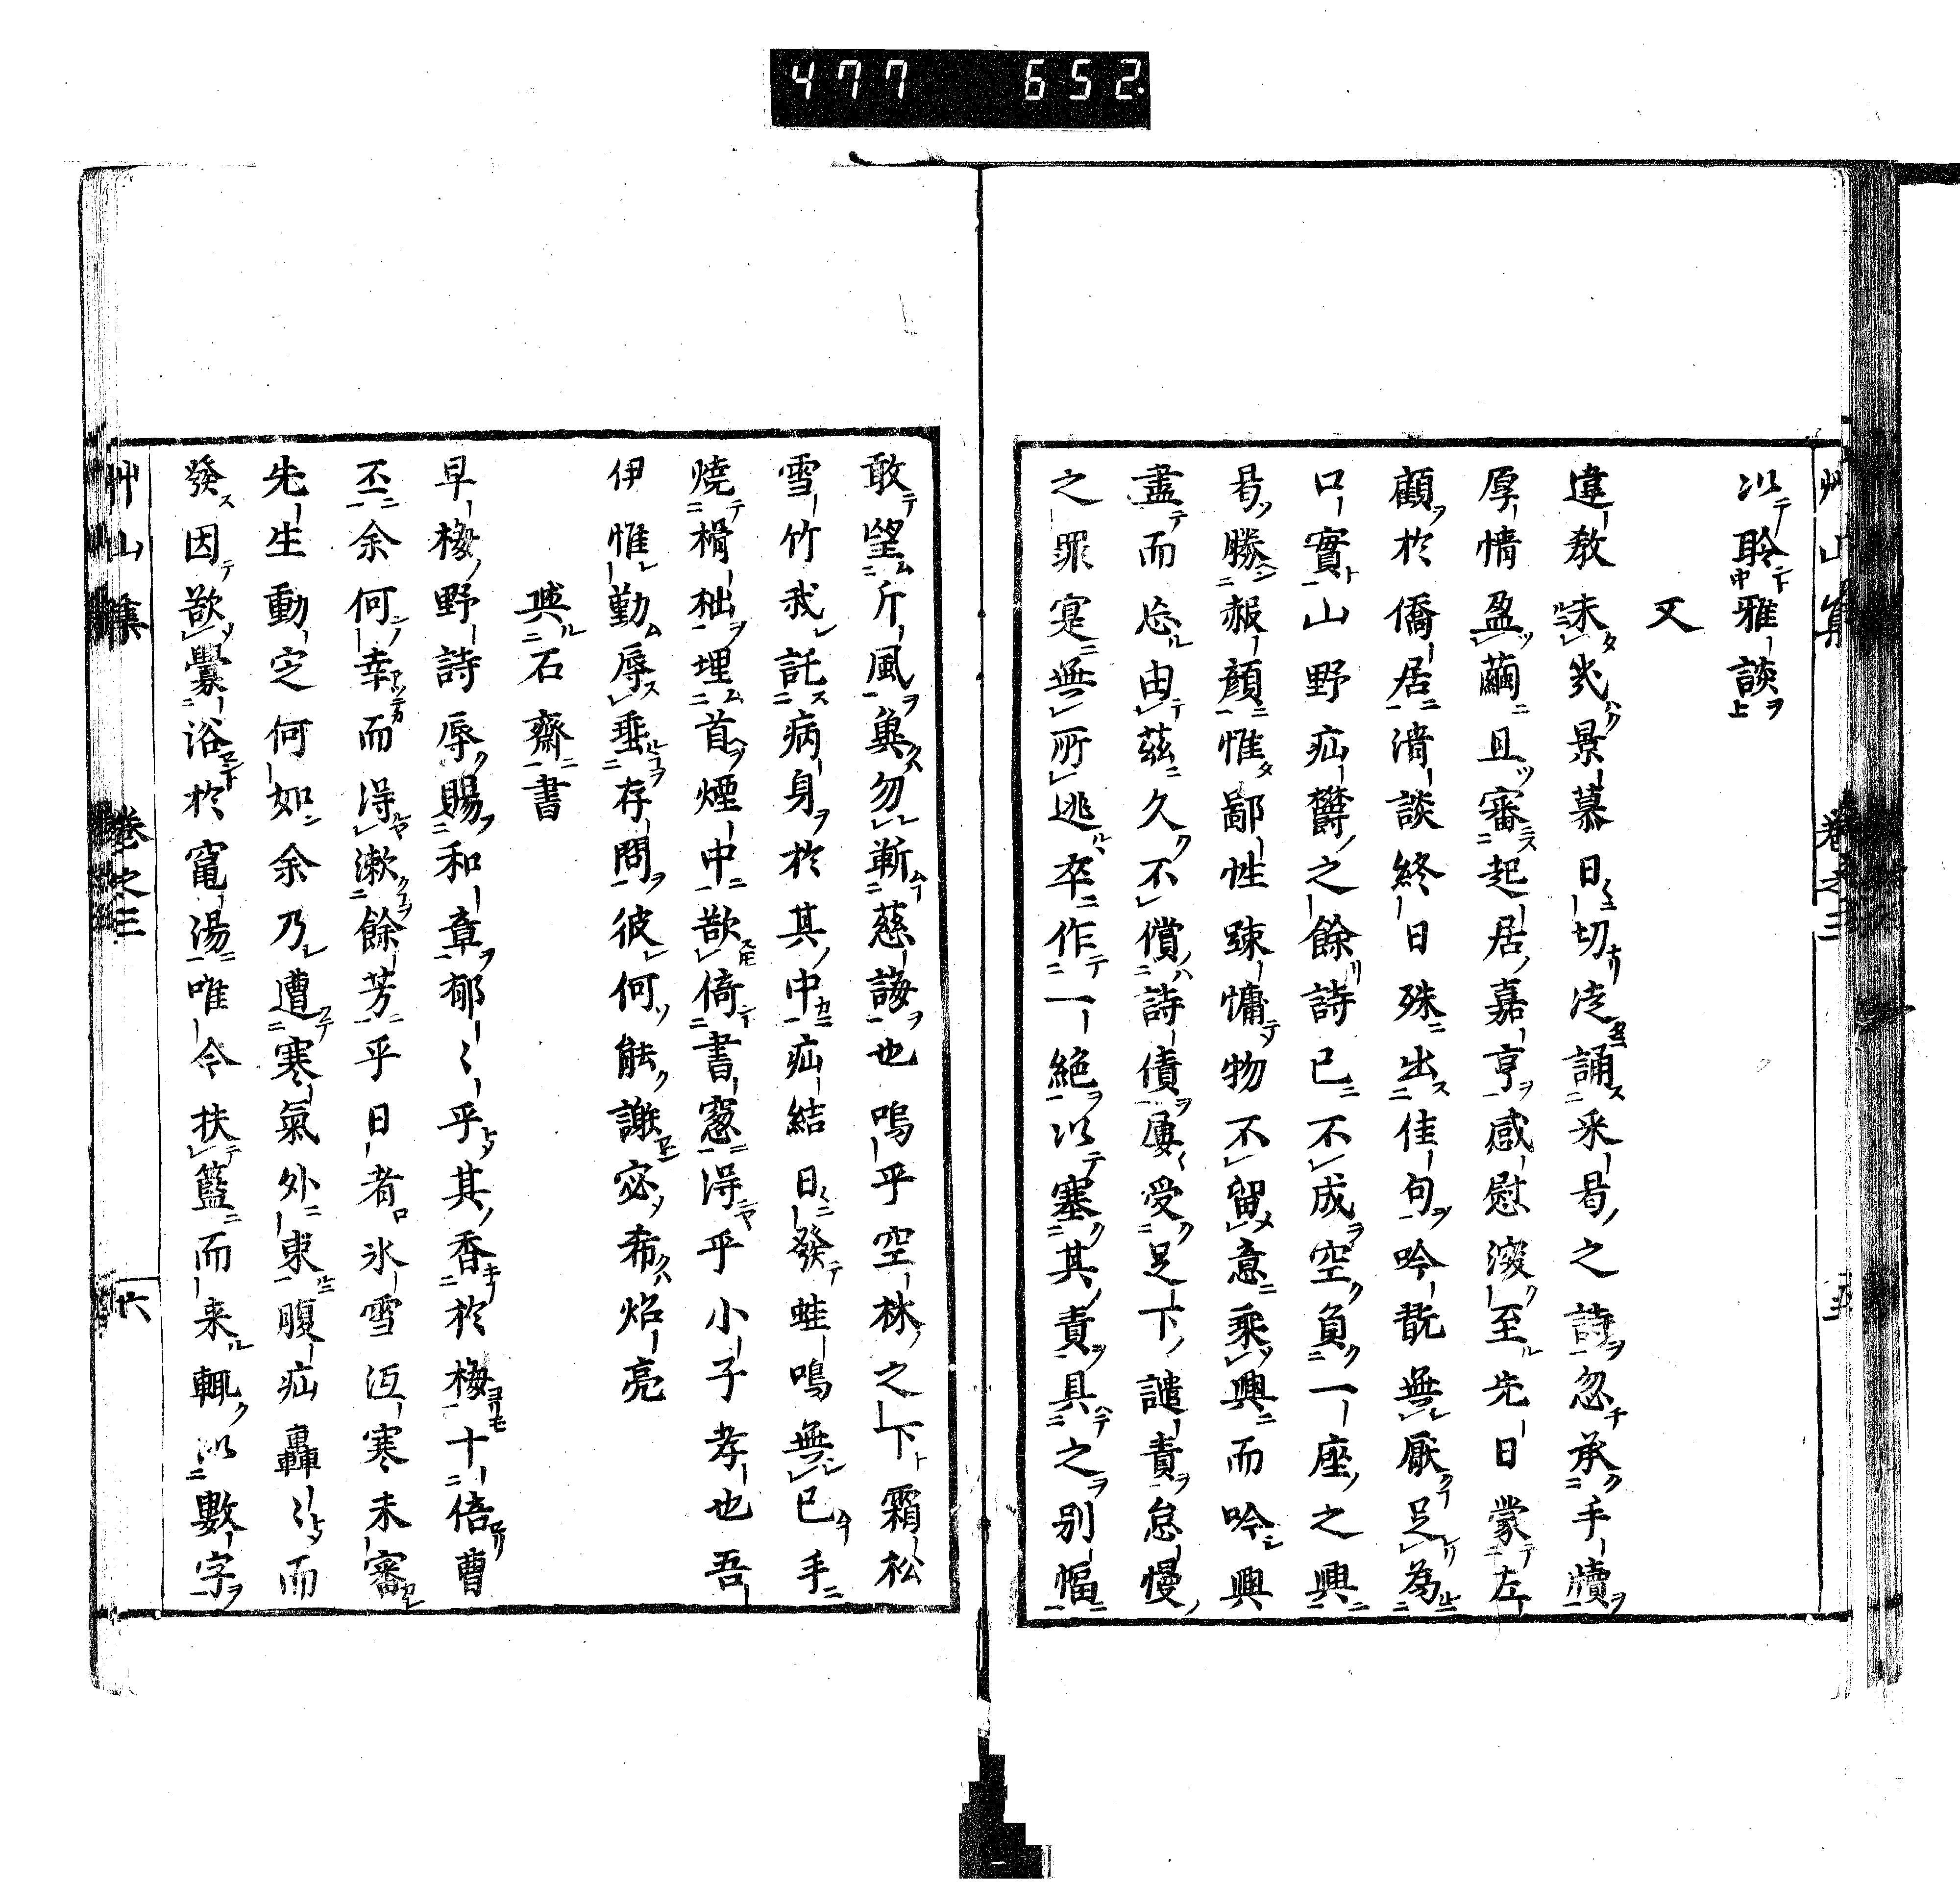 477 652
艸山集 卷之三 五
以聆雅談
又
違教未幾景慕日切淀誦釆曷之詩忽承手牘
厚情盈繭且審起居嘉亨感慰深至先日蒙左
顧於僑居清談終日殊出佳句吟翫無厭足為
口實山野疝欝之餘詩已不成空負一座之興
曷勝赧顔惟鄙性踈慵物不留意乘興而吟興
盡而忘由茲久不償詩債屢受足下譴責怠慢
之罪寔無所逃卒作一絶以塞其責具之别幅
敢望斤風輿勿靳慈誨也嗚乎空林之下霜松
雪竹我託病身於其中疝結日發蛙鳴無已手
燒榾柮埋首煙中歆倚書窻得乎小子孝也吾
伊惟勤辱垂存問彼何能謝宓希炤亮
與石齋書
早梅野詩辱賜和章郁〻乎其香於梅十倍曹
丕余何幸而得漱餘芳乎日者氷雪沍寒未審
先生動㝎何如余乃遭寒氣外束腹疝轟〻而
發因歆釁浴於竃湯唯令扶籃而来輙以數字
艸山集 卷之三 六